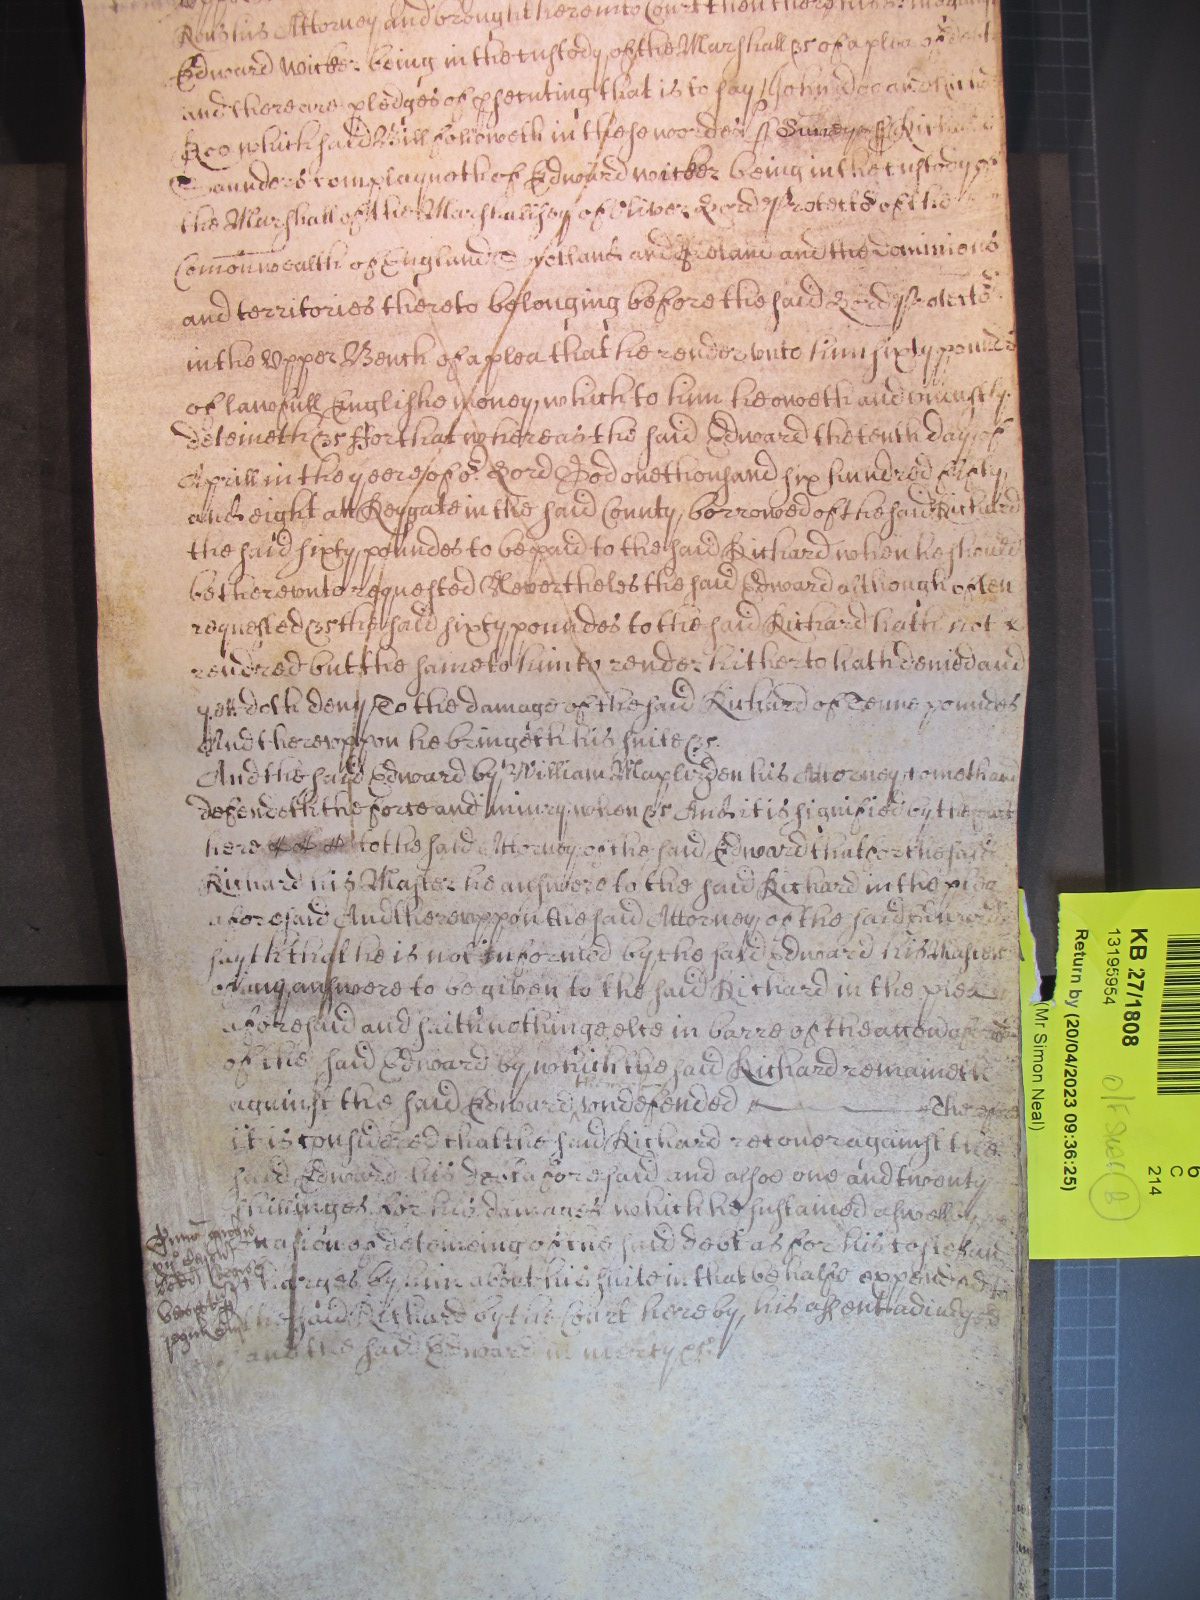 his Attorney and brought here into Court then there his
Edward Wicker being in the custody of the Marshall &c of a plea of debt
and there are pledges of psecuting that is to say John Doe and Richard
Roo which said Bill followeth in these wordes ss Surrey ss Richard
Saunders complayneth of Edward Wicker being in the custody of
the Marshall of the Marshallsey of Oliver Lord Protector of the
Comonwealth of England Scotland and Ireland and the Dominions
and territories thereto belonging before the said Lord Protector
in the Upper Bench of a plea that he render unto him sixty pounds
of lawfull Englishe money which to him he oweth and uniustly
deteineth &c ffor that whereas the said Edward the tenth day of
Aprill in the yeere of or Lord God one thousand six hundred fifty
and eight att Reygate in the said County borrowed of the said Richard
the said sixty poundes to be paid to the said Richard when he should
be thereunto requested Nevertheles the said Edward although often
requested &c the said sixty poundes to the said Richard hath not
rendered but the same to him to render hitherto hath denied and
yett doth deny To the damage of the said Richard of Tenne poundes
And thereuppon he bringeth his suite &c.
And the said Edward by William Maplizden his Attorney cometh and
defendeth the force and iniury when &c And it is signified by the Court
here to the said Attorney of the said Edward that for the said
Richard his Master he answere to the said Richard in the plea
aforesaid And thereuppon the said Attorney of the said Edward
sayth that he is not informed by the said Edward his Master
of any answere to be given to the said Richard in the plea
aforesaid and saith nothinge else in barre of the accon aforesaid
of the said Edward by which the said Richard remaineth
against the said Edward undefended Therefore
it is considered that the said Richard recover against the
said Edward his debt aforesaid and alsoe one and twenty
shillinges for his damages which he sustained aswell by
occasion of deteineing of the said debt as for his costes and
charges by him about his suite in that behalfe expended to
the said Richard by the Court here by his assent adiudged
and the said Edward in mercy &c.
KB 27/1808
13195954
Return by (20/04/2023 09:36:25)
(Mr Simon Neal)
6
C
214
B